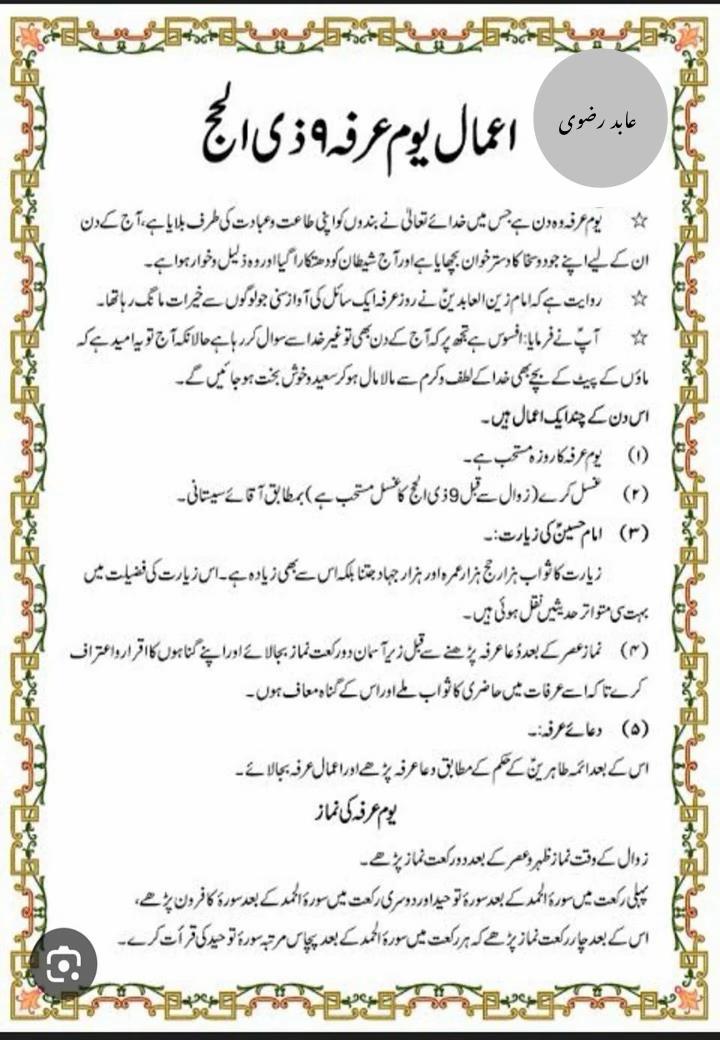 عابد رضوی
اعمال یوم عرفہ ۹ ذی الحج
☆ یوم عرفہ وہ دن ہے جس میں خدائے تعالیٰ نے بندوں کو اپنی طاعت و عبادت کی طرف بلایا ہے، آج کے دن
ان کے لیے اپنے جود و سخا کا دسترخوان بچھایا ہے اور آج شیطان کو دھتکارا گیا اور وہ ذلیل و خوار ہوا ہے۔
☆ روایت ہے کہ امام زین العابدینؑ نے روز عرفہ ایک سائل کی آواز سنی جو لوگوں سے خیرات مانگ رہا تھا۔
☆ آپؑ نے فرمایا: افسوس ہے تجھ پر کہ آج کے دن بھی تو غیر خدا سے سوال کر رہا ہے حالانکہ آج تو یہ امید ہے کہ
ماؤں کے پیٹ کے بچے بھی خدا کے لطف و کرم سے مالا مال ہو کر سعید و خوش بخت ہو جائیں گے۔
اس دن کے چند ایک اعمال ہیں۔
(۱) یوم عرفہ کا روزہ مستحب ہے۔
(۲) غسل کرے (زوال سے قبل 9 ذی الحج کا غسل مستحب ہے) بمطابق آقائے سیستانی۔
(۳) امام حسینؑ کی زیارت:۔
زیارت کا ثواب ہزار حج ہزار عمرہ اور ہزار جہاد جتنا بلکہ اس سے بھی زیادہ ہے۔ اس زیارت کی فضیلت میں
بہت سی متواتر حدیثیں نقل ہوئی ہیں۔
(۴) نماز عصر کے بعد دُعا عرفہ پڑھنے سے قبل زیر آسمان دو رکعت نماز بجا لائے اور اپنے گناہوں کا اقرار و اعتراف
کرے تا کہ اسے عرفات میں حاضری کا ثواب ملے اور اس کے گناہ معاف ہوں۔
(۵) دعائے عرفہ:۔
اس کے بعد ائمہ طاہرینؑ کے حکم کے مطابق دعا عرفہ پڑھے اور اعمال عرفہ بجا لائے۔
یوم عرفہ کی نماز
زوال کے وقت نماز ظہر و عصر کے بعد دو رکعت نماز پڑھے۔
پہلی رکعت میں سورۂ الحمد کے بعد سورۂ توحید اور دوسری رکعت میں سورۂ الحمد کے بعد سورۂ کافرون پڑھے،
اس کے بعد چار رکعت نماز پڑھے کہ ہر رکعت میں سورۂ الحمد کے بعد پچاس مرتبہ سورۂ توحید کی قرأت کرے۔